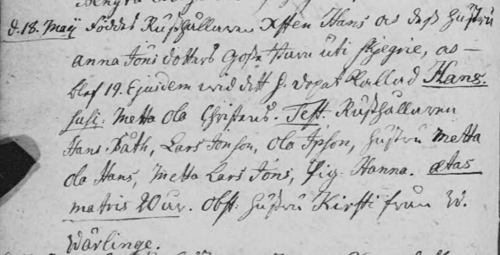 d. 18. Maij föddes Rusthållaren Hans och dess hustru
anna Jöns dotters uti Skegrie,
blef 19. Ejusdem wed dett H. dopet kallad Hans.
Susc. Metta Ola Christens. Test. Rusthållaren
Hans Båth, Lars Jonson, Ola Ipson, hustru Metta
Ola Hans, Metta Lars Jöns, Pig. Hanna. ætas
matris 20 år. Obst. hustru Kirsti från W.
Wärlinge.